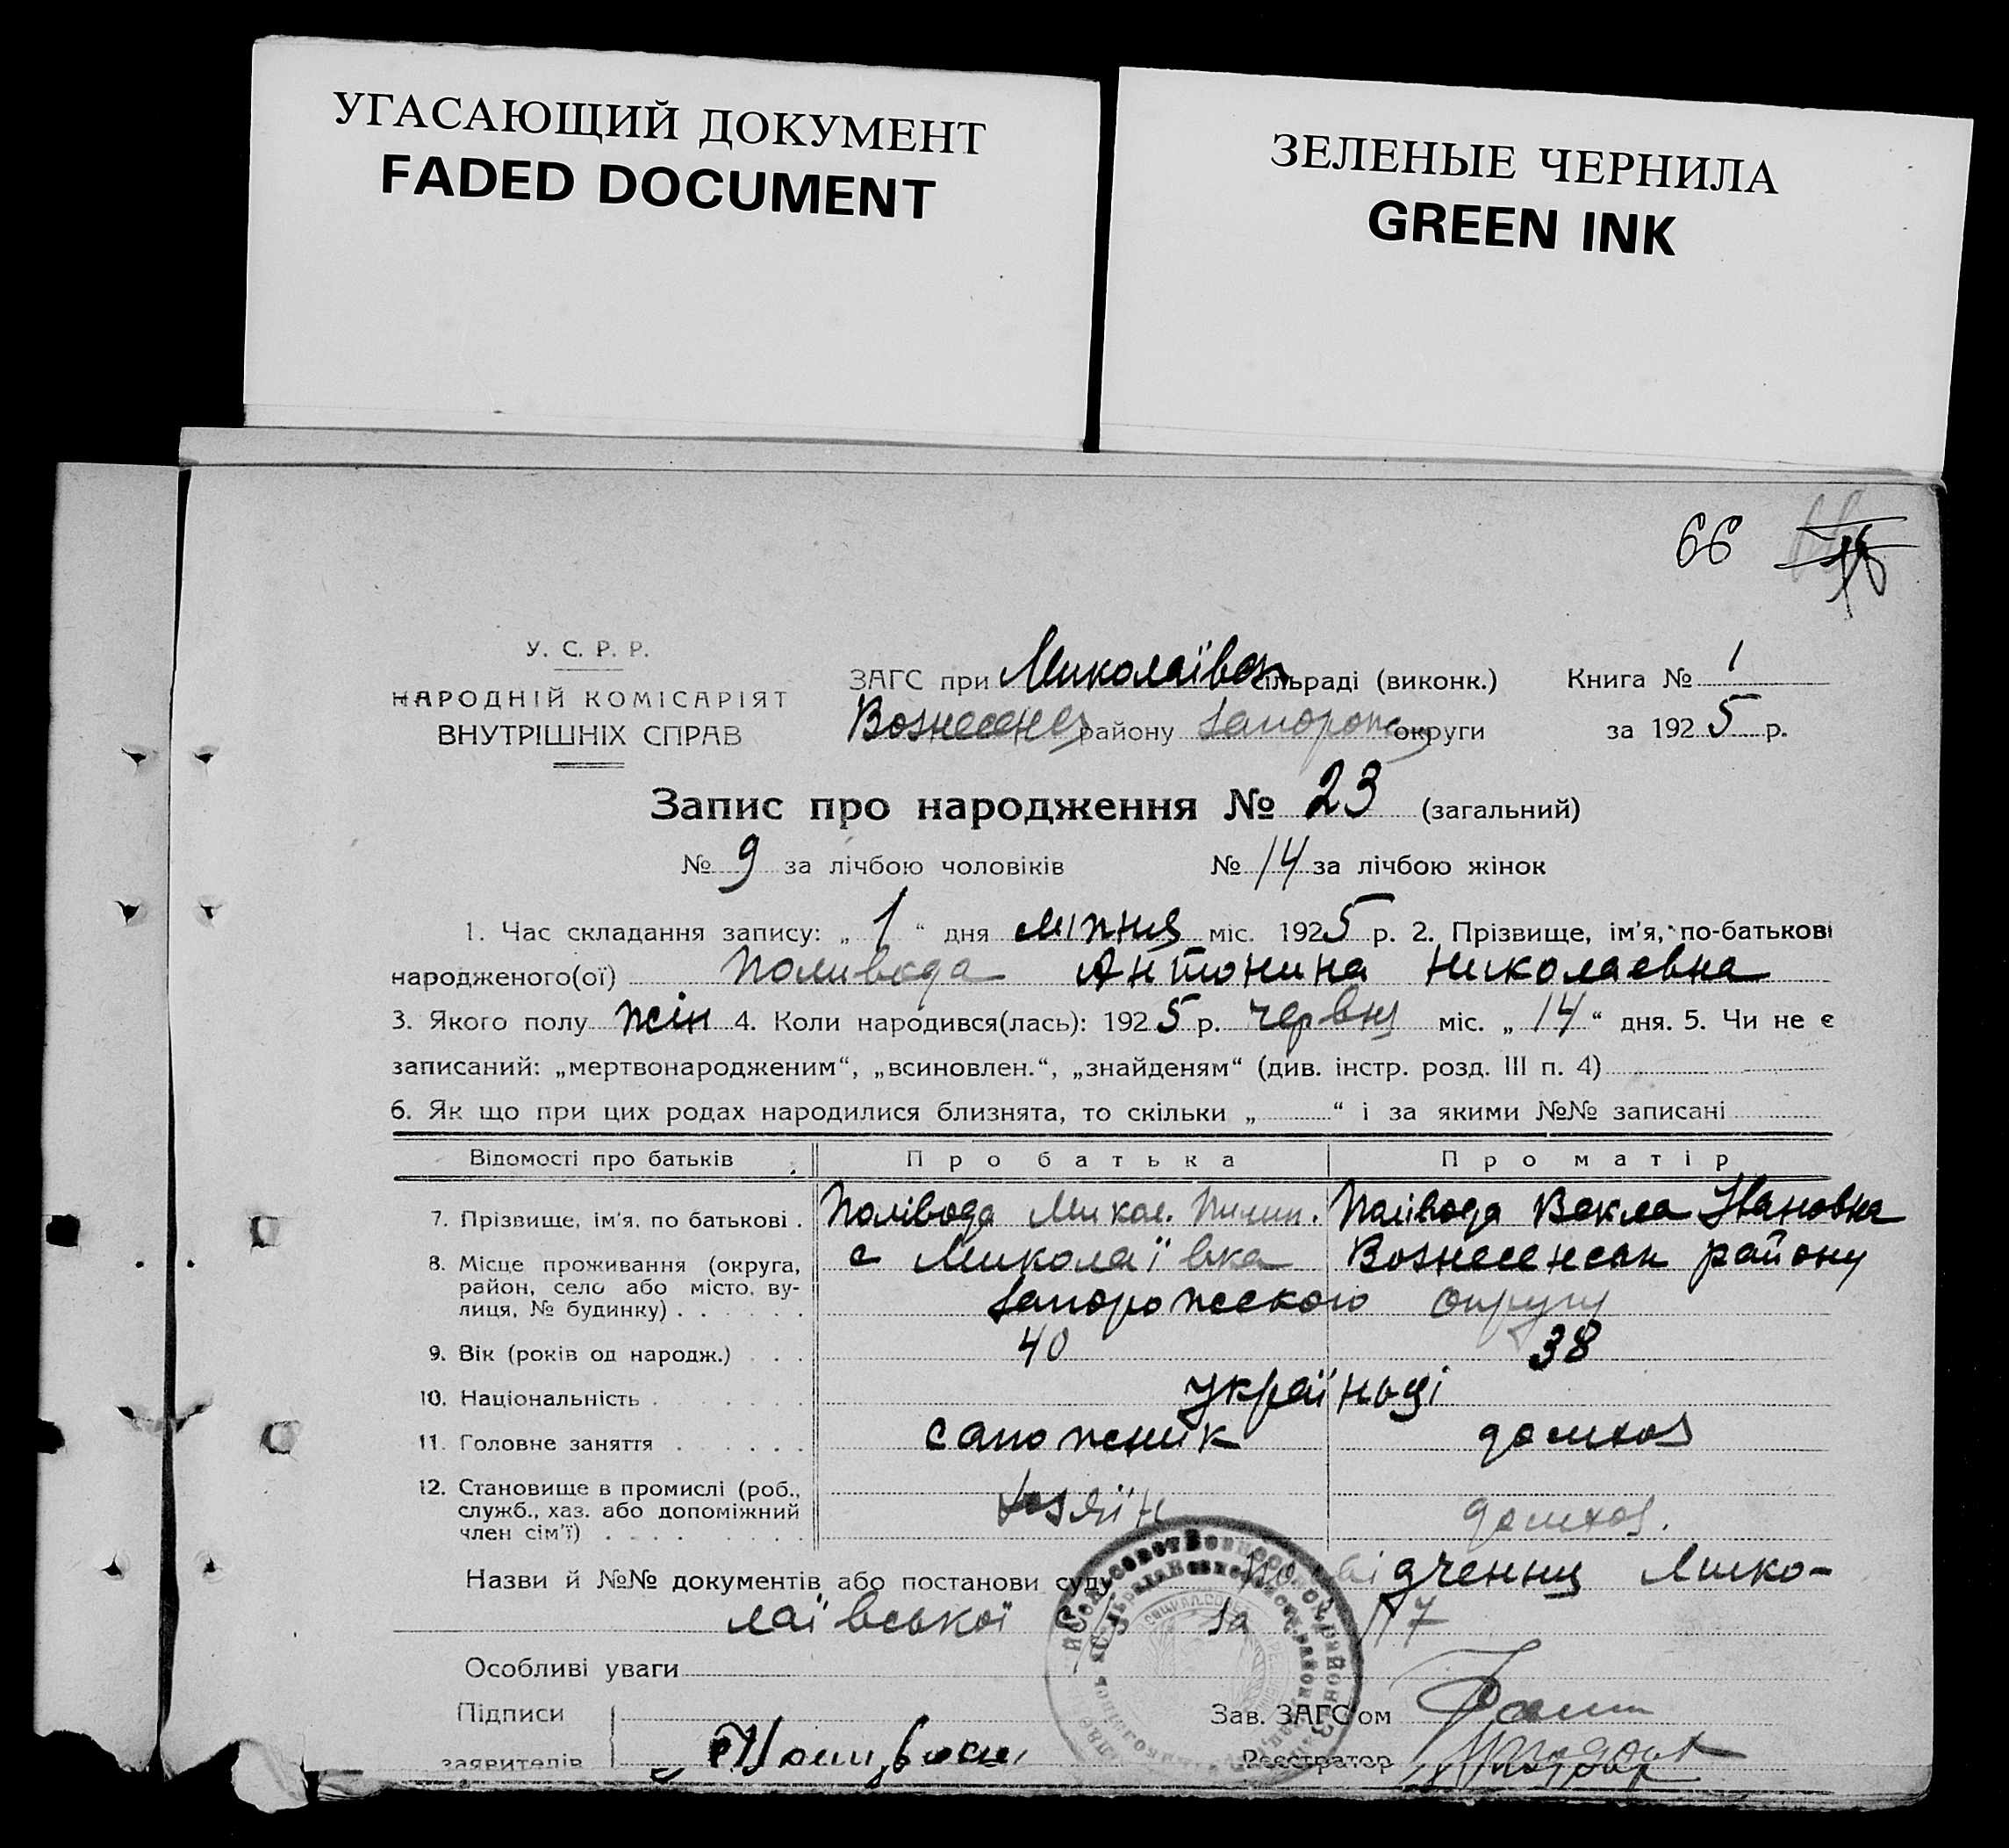 УГАСАЮЩИЙ ДОКУМЕНТ
FADED DOCUMENT
ЗЕЛЕНЫЕ ЧЕРНИЛА
GREEN INK
66
У. С. Р. Р.
НАРОДНІЙ КОМІСАРІЯТ
ВНУТРІШНІХ СПРАВ
ЗАГС при Миколаївск сільраді (виконк.) Книга № 1
Вознесенс району Запорожс округи за 1925 р.
Запис про народження № 23 (загальний)
№ 9 за лічбою чоловіків № 14 за лічбою жінок
1. Час складання запису: „ 1 “ дня липня міс. 1925 р. 2. Прізвище, ім'я, по-батькові
народженого(ої) Поливода Антонина Николаевна
3. Якого полу жін 4. Коли народився(лась): 1925 р. червня міс. „ 14 “ дня. 5. Чи не є
записаний: „мертвонародженим“, „всиновлен.“, „знайденям“ (див. інстр. розд. III п. 4)
6. Як що при цих родах народилися близнята, то скільки „ “ і за якими №№ записані
Відомості про батьків Про батька Про матір
7. Прізвище, ім'я, по батькові . Полівода Микол. Полівода Векла Івановна
8. Місце проживання (округа, район, село або місто, вулиця, № будинку) . с Миколаївка Вознесенськ району
Запорожского округу
9. Вік (років од народж.) 40 38
10. Національність . українці
11. Головне заняття сапожник домхоз
12. Становище в промислі (роб., служб., хаз. або допоміжний член сім'ї) хозяїн домхоз.
Назви й №№ документів або постанови суду Мико-
лаївської С/р за 117
Особливі уваги
Підписи
заявителів
Зав. ЗАГС'ом
Реєстратор